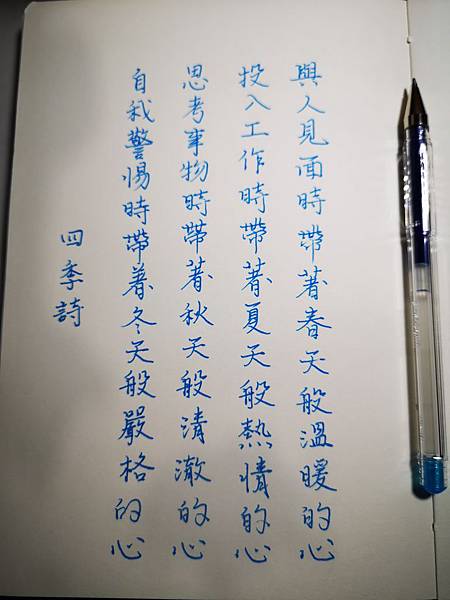 與人見面時帶著春天般溫暖的心
投入工作時帶著夏天般熱情的心
思考事物時帶著秋天般清澈的心
自我警惕時帶著冬天般嚴格的心
四季詩